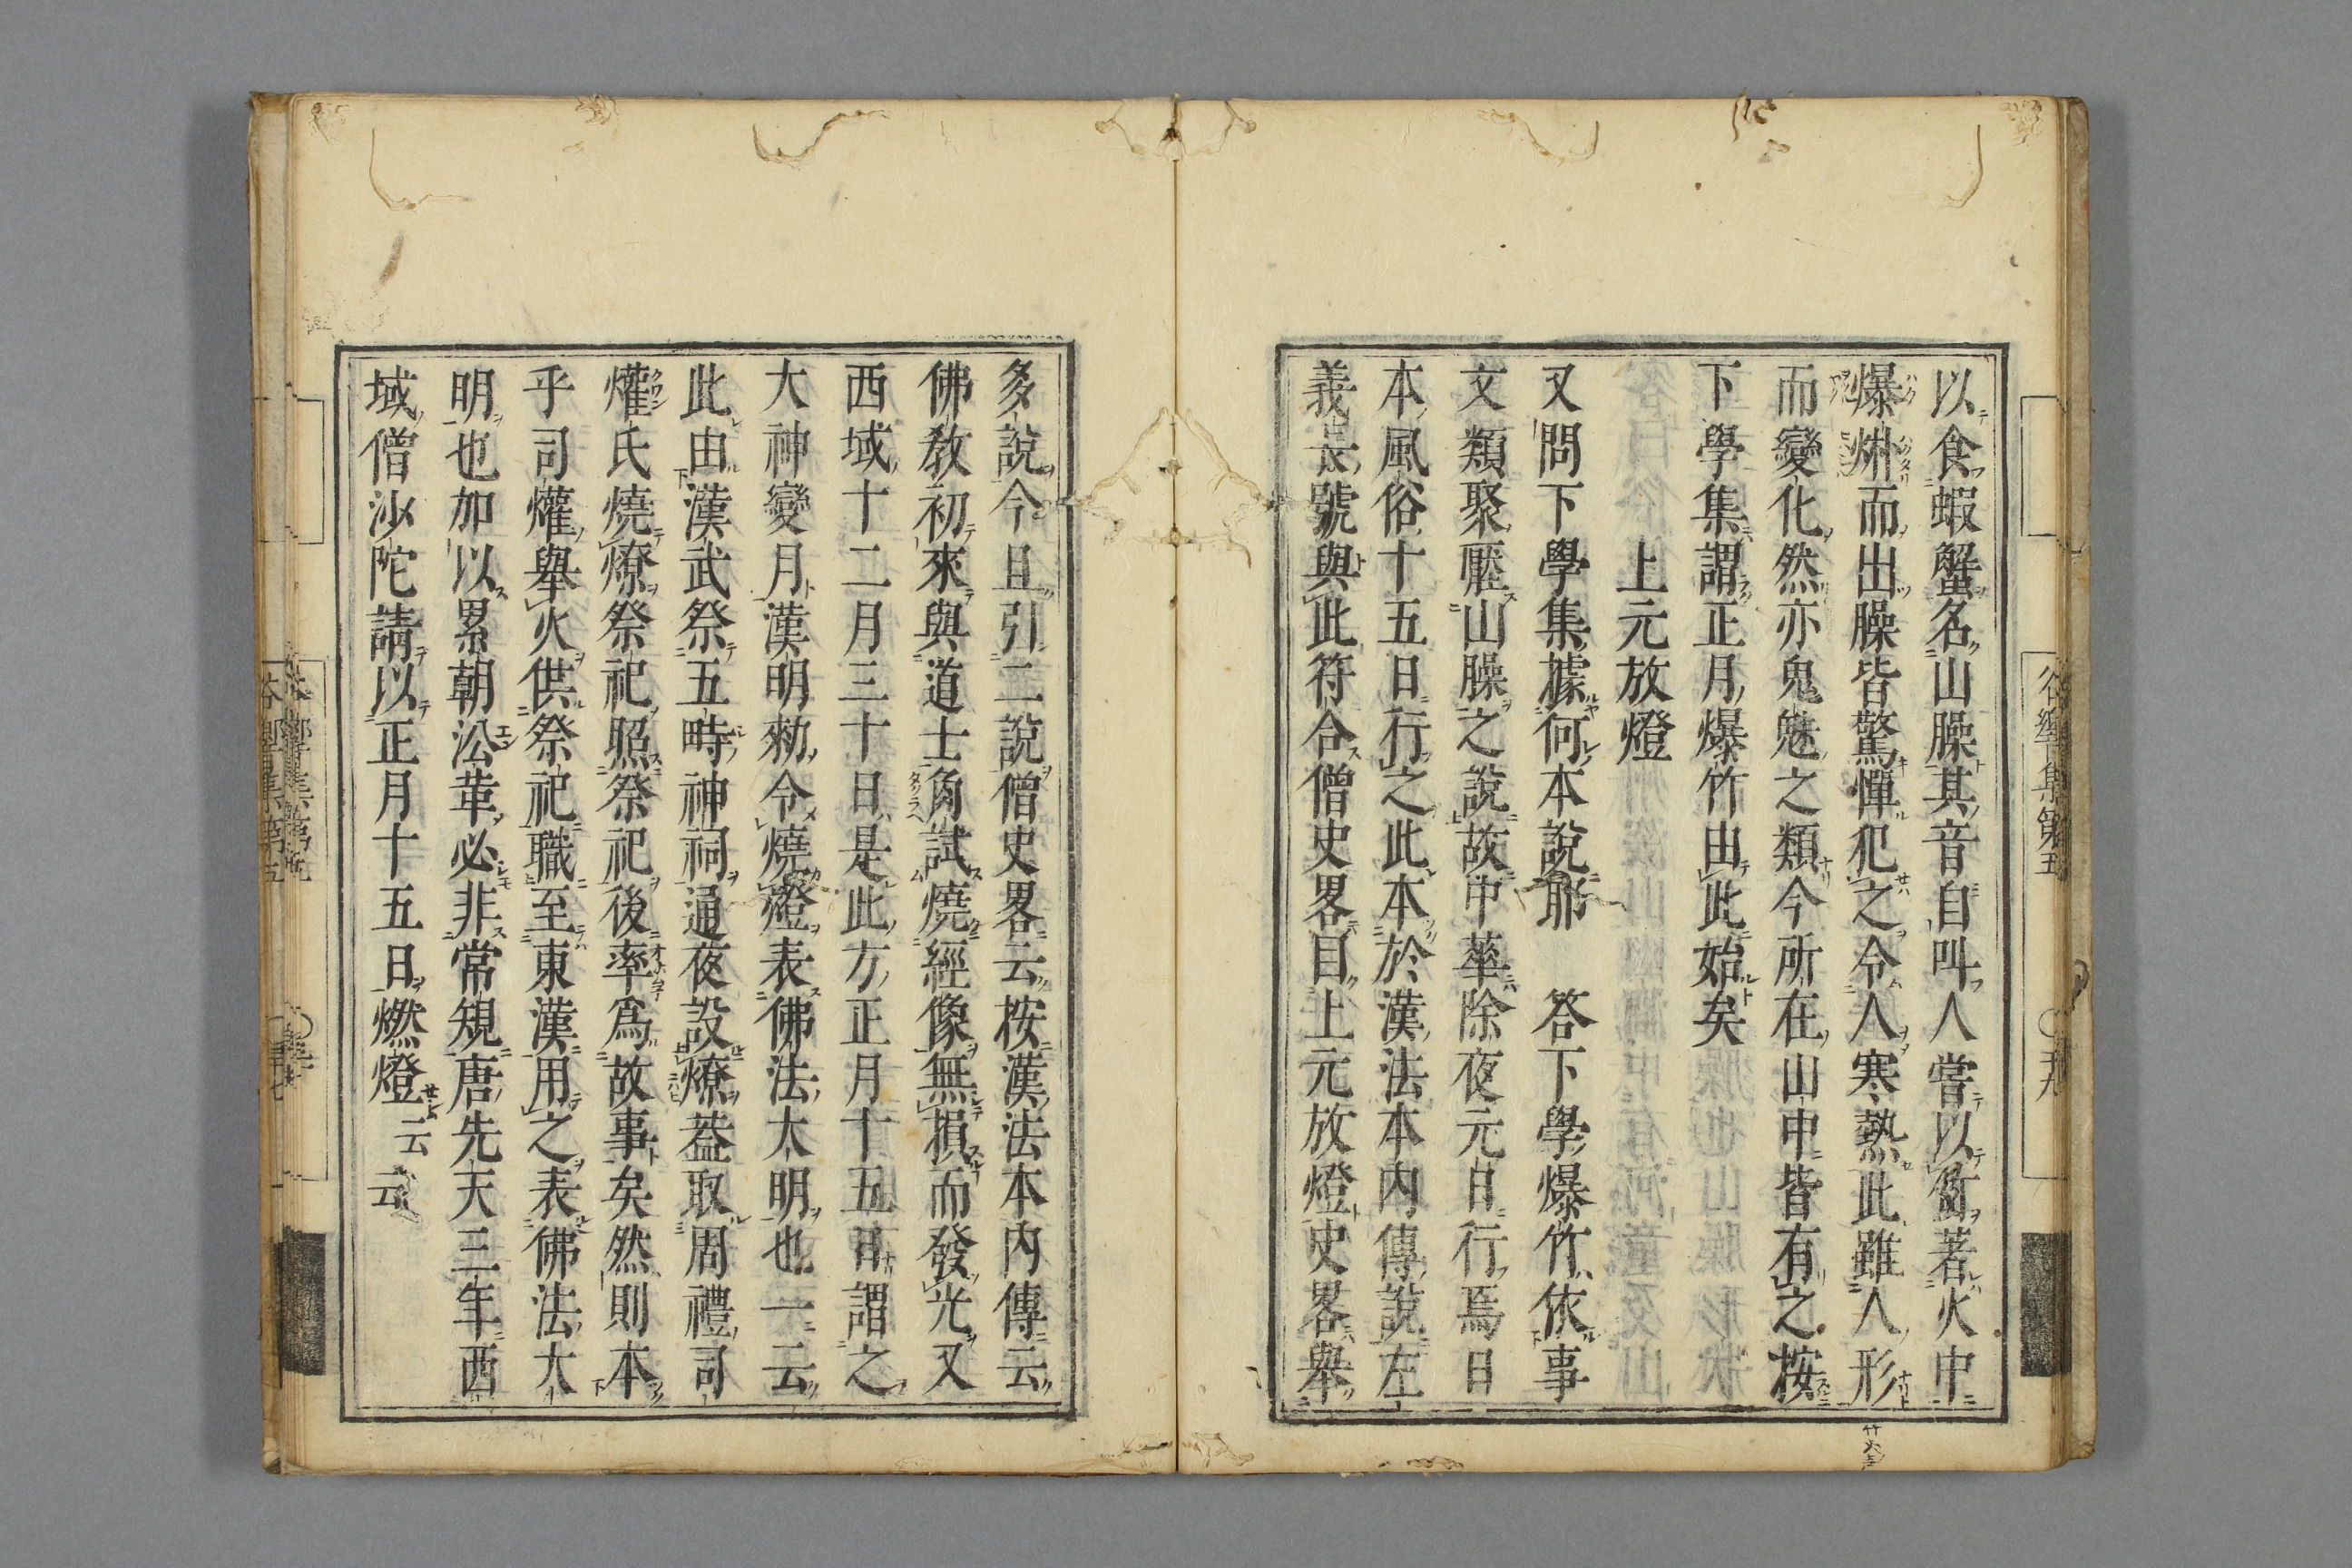 以食蝦蟹名山臊其音自叫人嘗以竹著火中
爆烞而出臊皆驚憚犯之令人寒熱此雖人形
而變化然亦鬼魅之類今所在山中皆有之按
下學集謂正月爆竹由此始矣
上元放燈
又問下學集據何本說耶 答下學爆竹依事
文類聚壓山臊之說故中華除夜元日行焉日
本風俗十五日行之此本於漢法本內傳說左
義長號與此符合僧史畧目上元放燈史畧舉
多說今且引二說僧史畧云按漢法本內傳云
佛教初來與道士角試燒經像無損而發光又
西域十二月三十日是此方正月十五日謂之
大神變月漢明勑令燒燈表佛法大明也一云
此由漢武祭五時神祠通夜設燎葢取周禮司
爟氏燒燎祭祀照祭祀後率為故事矣然則本
乎司爟舉火供祭祀職至東漢用之表佛法大
明也加以累朝㳂革必非常規唐先天三年西
域僧沙陀請以正月十五日燃燈云云
谷響集第五
五十九